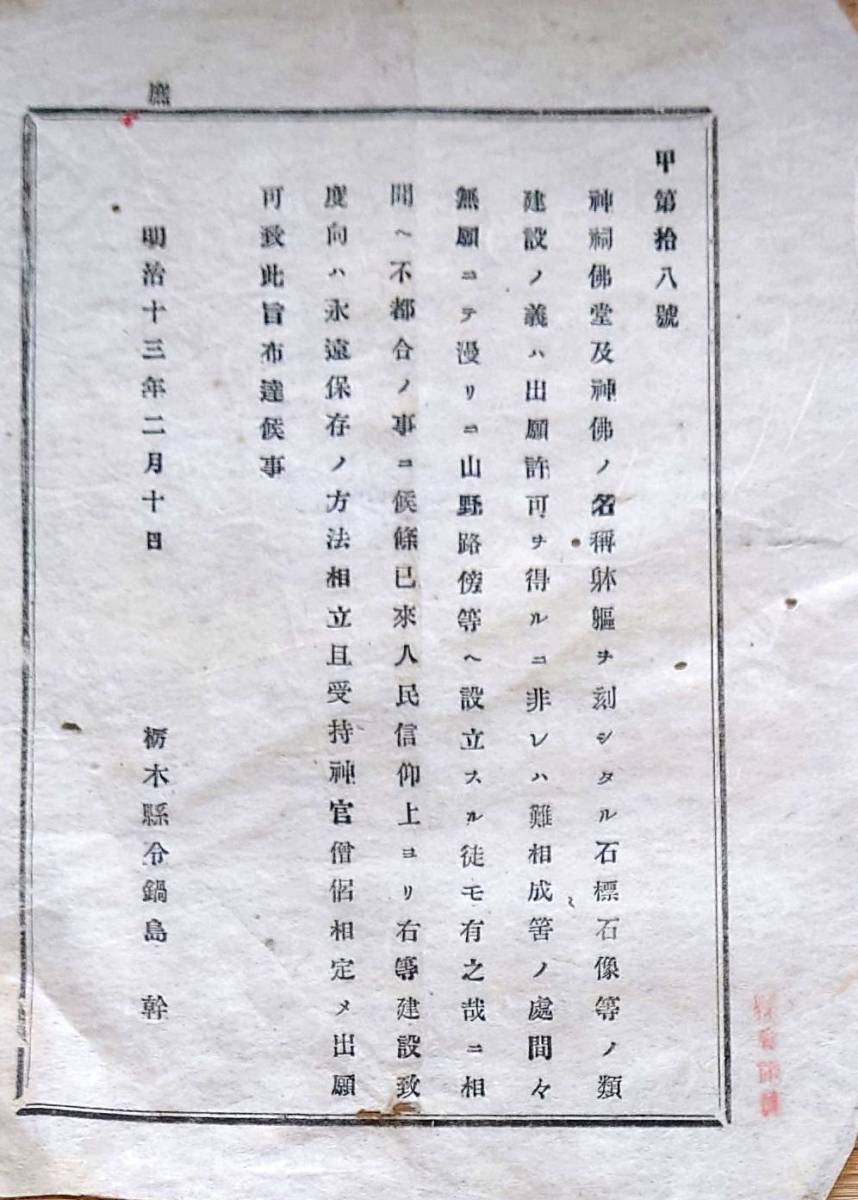 庶
甲第拾八號
神祠佛堂及神佛ノ名稱躰軀ヲ刻シタル石標石像等ノ類
建設ノ義ハ出願許可ヲ得ルニ非レハ難相成筈ノ處間々
無願ニテ漫リニ山野路傍等ヘ設立スル徒モ有之哉ニ相
聞ヘ不都合ノ事ニ候條已來人民信仰上ヨリ右等建設致
度向ハ永遠保存ノ方法相立且受持神官僧侶相定メ出願
可致此旨布達候事
明治十三年二月十日
栃木縣令鍋島幹